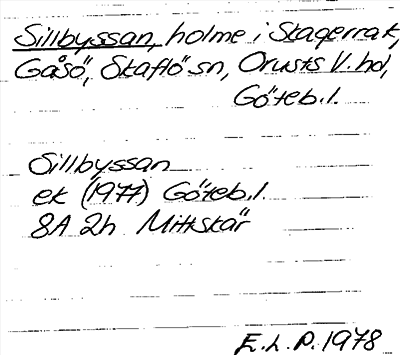 Sillbyssan, holme i Skagerrak,
Gåsö, Skaftö sn, Orusts V. hd,
Göteb. l.
Sillbyssan
ek (1977) Göteb. l.
8A 2h Mittskär
E. L. P. 1978